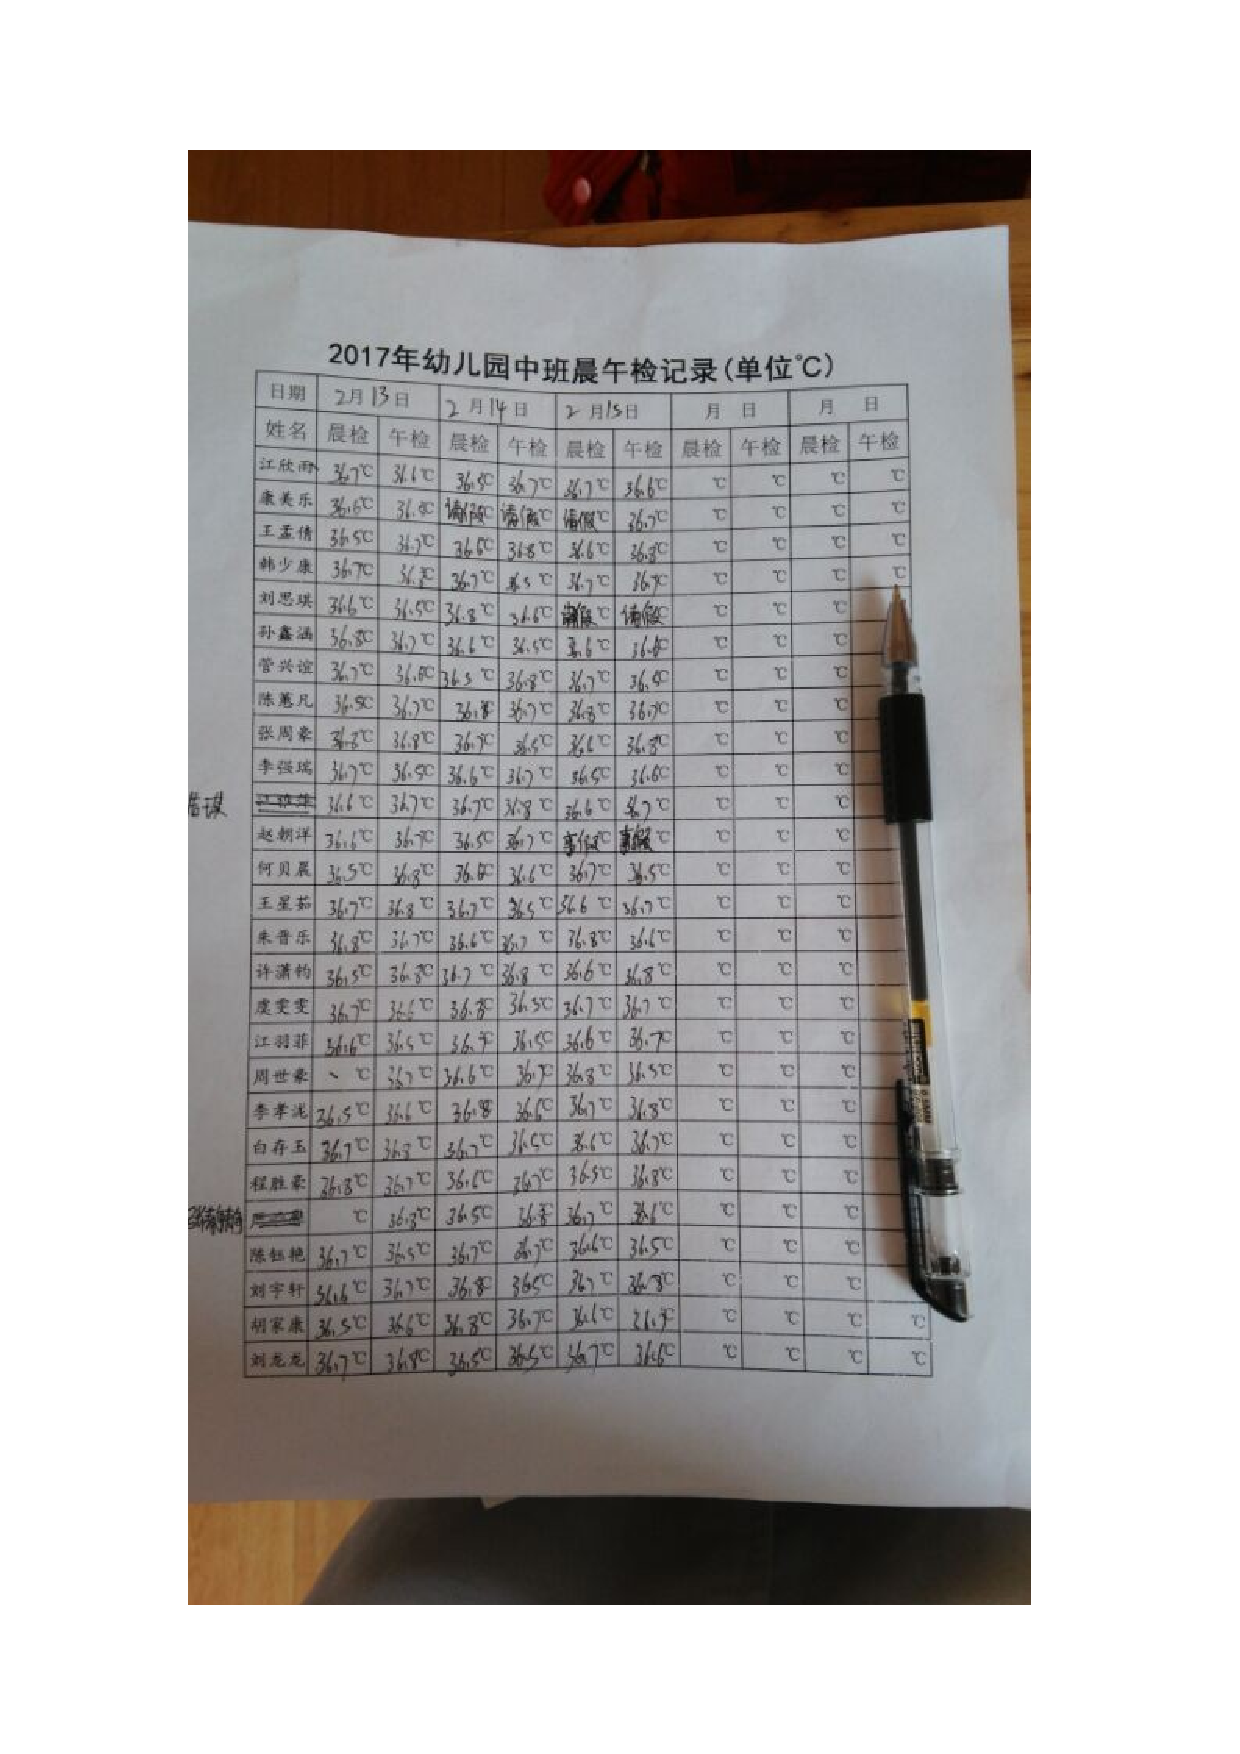 2017年幼儿园中班晨午检记录(单位℃)
日期 2月13日 2月14日 2月15日 月 日 月 日
姓名 晨检 午检 晨检 午检 晨检 午检 晨检 午检 晨检 午检
江欣雨 36.7℃ 36.6℃ 36.5℃ 36.7℃ 36.7℃ 36.6℃ ℃ ℃ ℃ ℃
康美乐 36.6℃ 36.8℃ 请假℃ 请假℃ 请假℃ 36.7℃ ℃ ℃ ℃ ℃
王孟倩 36.5℃ 36.7℃ 36.6℃ 36.8℃ 36.6℃ 36.8℃ ℃ ℃ ℃ ℃
韩少康 36.7℃ 36.8℃ 36.7℃ 36.5℃ 36.7℃ 36.7℃ ℃ ℃ ℃ ℃
刘思琪 36.6℃ 36.5℃ 36.8℃ 36.6℃ 请假℃ 请假℃ ℃ ℃ ℃
孙鑫涵 36.8℃ 36.7℃ 36.6℃ 36.5℃ 36.6℃ 36.6℃ ℃ ℃ ℃
管兴谊 36.7℃ 36.6℃ 36.5℃ 36.8℃ 36.7℃ 36.5℃ ℃ ℃ ℃
陈蕙凡 36.5℃ 36.7℃ 36.8℃ 36.7℃ 36.8℃ 36.7℃ ℃ ℃ ℃
张周豪 36.8℃ 36.8℃ 36.7℃ 36.5℃ 36.6℃ 36.8℃ ℃ ℃ ℃
李强瑞 36.7℃ 36.5℃ 36.6℃ 36.7℃ 36.5℃ 36.6℃ ℃ ℃ ℃
36.6℃ 36.7℃ 36.7℃ 36.8℃ 36.6℃ 36.7℃ ℃ ℃ ℃
赵朝洋 36.6℃ 36.7℃ 36.5℃ 36.7℃ 事假℃ 事假℃ ℃ ℃ ℃
何贝晨 36.5℃ 36.8℃ 36.6℃ 36.6℃ 36.7℃ 36.5℃ ℃ ℃ ℃
王星茹 36.7℃ 36.8℃ 36.7℃ 36.5℃ 36.6℃ 36.7℃ ℃ ℃ ℃
朱晋乐 36.8℃ 36.7℃ 36.6℃ 36.7℃ 36.8℃ 36.6℃ ℃ ℃ ℃
许潇钧 36.5℃ 36.8℃ 36.7℃ 36.8℃ 36.6℃ 36.8℃ ℃ ℃ ℃
虞雯雯 36.7℃ 36.6℃ 36.8℃ 36.5℃ 36.7℃ 36.7℃ ℃ ℃ ℃
江羽菲 36.6℃ 36.5℃ 36.7℃ 36.5℃ 36.6℃ 36.7℃ ℃ ℃ ℃
周世豪 ℃ 36.7℃ 36.6℃ 36.7℃ 36.8℃ 36.5℃ ℃ ℃ ℃
李孝泷 36.5℃ 36.6℃ 36.8℃ 36.6℃ 36.7℃ 36.8℃ ℃ ℃ ℃
白存玉 36.7℃ 36.8℃ 36.7℃ 36.5℃ 36.6℃ 36.7℃ ℃ ℃ ℃
程胜豪 36.8℃ 36.7℃ 36.6℃ 36.7℃ 36.5℃ 36.8℃ ℃ ℃ ℃
℃ 36.8℃ 36.5℃ 36.8℃ 36.7℃ 36.6℃ ℃ ℃ ℃
陈钰艳 36.7℃ 36.5℃ 36.7℃ 36.7℃ 36.6℃ 36.5℃ ℃ ℃ ℃
刘宇轩 36.6℃ 36.7℃ 36.8℃ 36.5℃ 36.7℃ 36.8℃ ℃ ℃ ℃
胡家康 36.5℃ 36.6℃ 36.8℃ 36.7℃ 36.6℃ 36.7℃ ℃ ℃ ℃ ℃
刘龙龙 36.7℃ 36.8℃ 36.5℃ 36.5℃ 36.7℃ 36.6℃ ℃ ℃ ℃ ℃